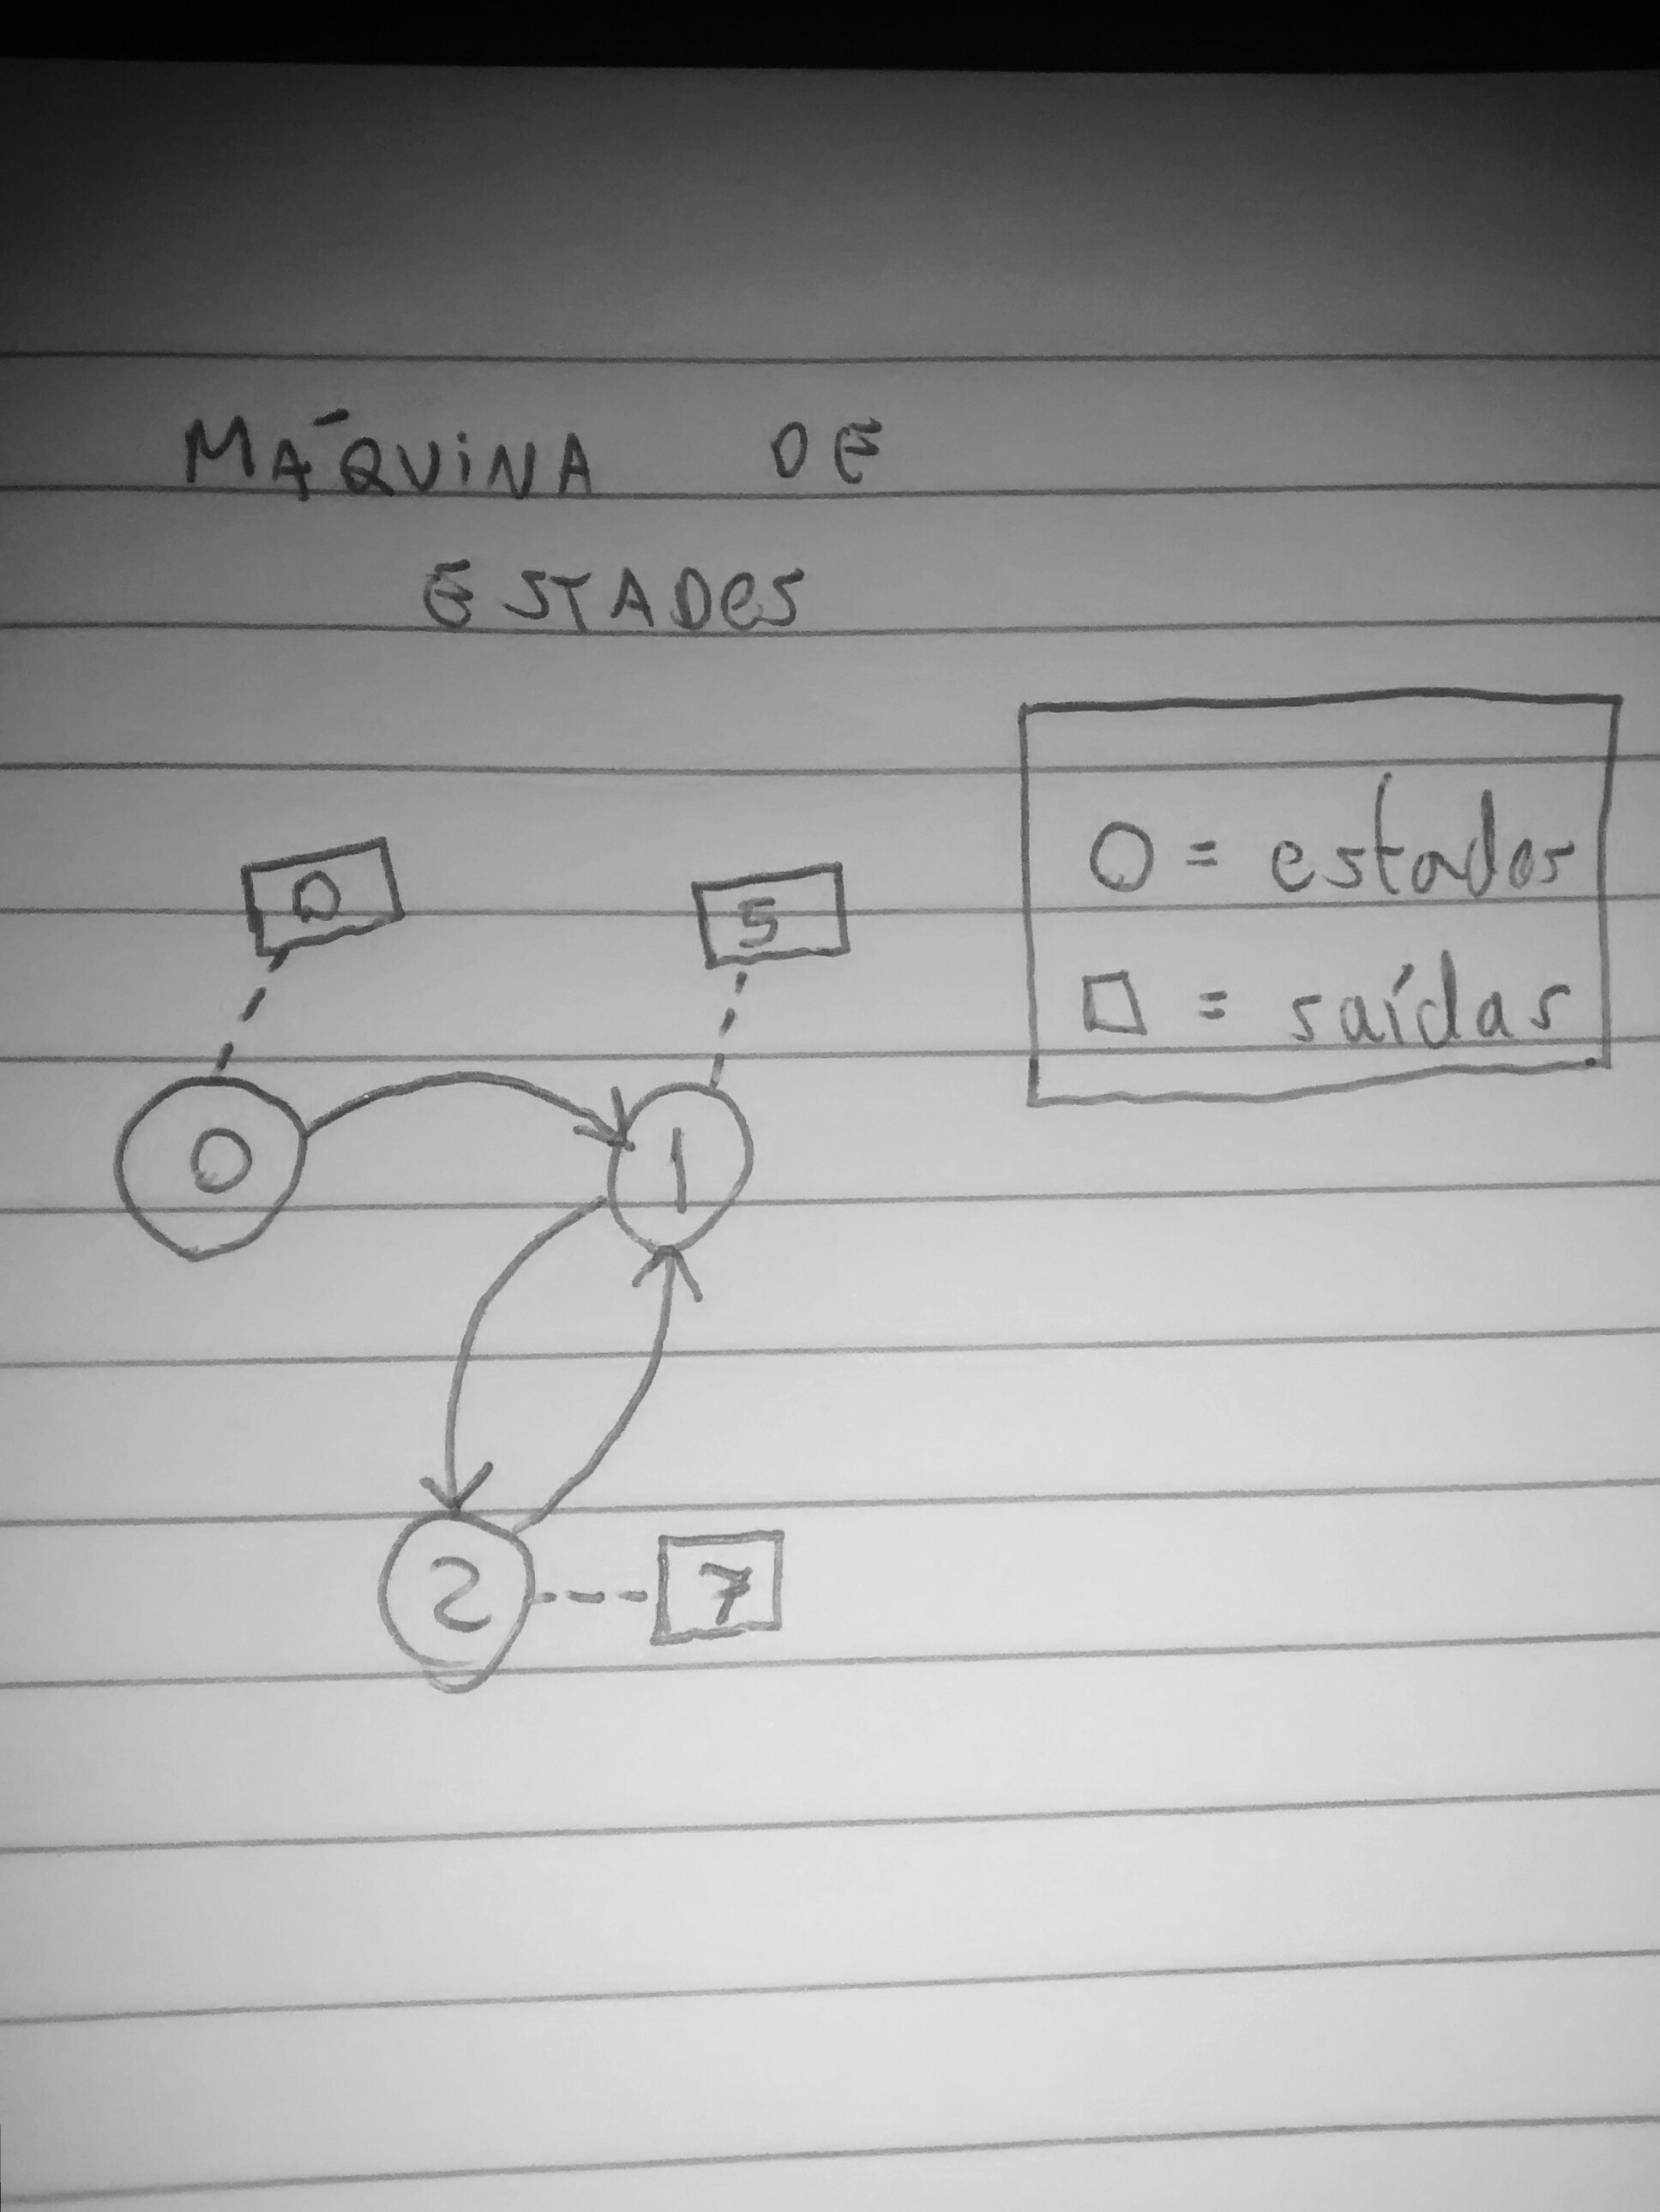 MÁQUINA DE
ESTADOS
0
5
O = estados
□ = saídas
0
1
2
7